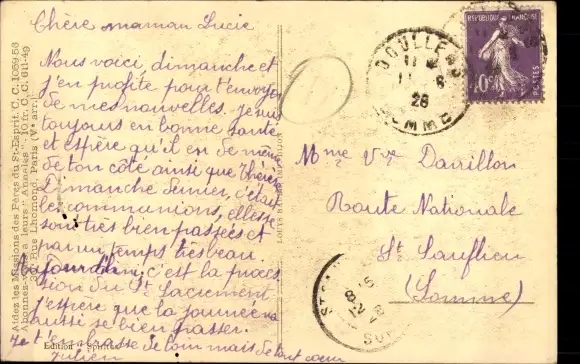 Chère maman Lucie
Nous voici dimanche et
j'en profite pour t'envoyer
de mes nouvelles. je suis
toujours en bonne santé
et espère qu'il en de même
de ton côté ainsi que Thérèse
Dimanche dernier, c'était
les communions, elles se
sont très bien passées et
par un temps très beau.
Aujourd'hui, c'est la proces
sion du St Sacrement
J'espère que la journée va
aussi se bien passer.
Je t'embrasse de loin mais de tout coeur
Julien
Aidez les Missions des Pères du St-Esprit. C. C. 1059-53
Abonnez-vous à leurs "Annales", 10 fr. C. C. 611-49
30, Rue Lhomond, Paris (Ve arr.)
Edition
DOULLENS
11
6
26
SOMME
REPUBLIQUE FRANÇAISE
40c
POSTES
Mme Vve Davillon
Route Nationale
St Sauflieu
(Somme)